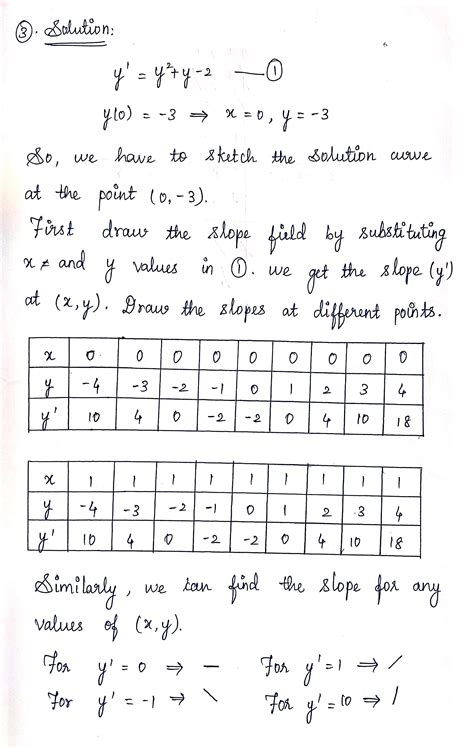 ③. Solution:
y' = y²+y-2 —①
y(0) = -3 ⇒ x=0, y=-3
So, we have to sketch the solution curve
at the point (0,-3).
First draw the slope field by substituting
x ≠ and y values in ①. we get the slope (y')
at (x,y). Draw the slopes at different points.
x 0 0 0 0 0 0 0 0 0
y -4 -3 -2 -1 0 1 2 3 4
y' 10 4 0 -2 -2 0 4 10 18
x 1 1 1 1 1 1 1 1 1
y -4 -3 -2 -1 0 1 2 3 4
y' 10 4 0 -2 -2 0 4 10 18
Similarly, we can find the slope for any
values of (x,y).
For y' = 0 ⇒ — For y'=1 ⇒ /
For y' = -1 ⇒ \ For y'=10 ⇒ /